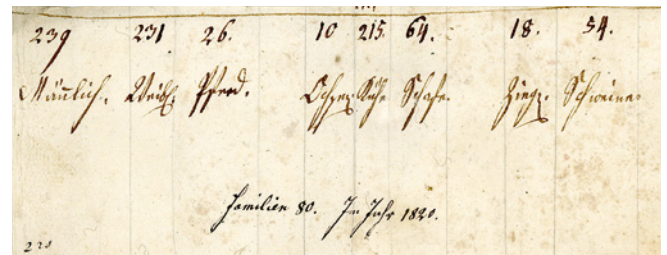 239 231 26. 10 215. 64. 18. 54.
Mäñlich. Weibl. Pferd. Ochsen Kühe Schafe. Ziege. Schweine.
Familien 80. Im Jahr 1820.